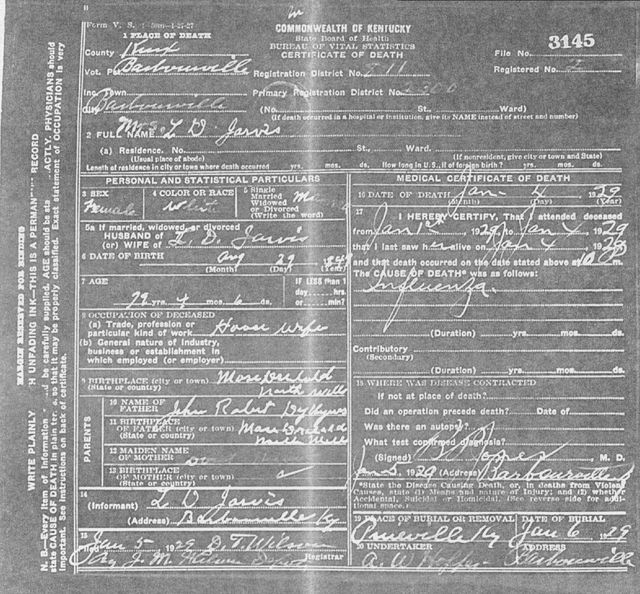 Form V. S.
COMMONWEALTH OF KENTUCKY
State Board of Health
BUREAU OF VITAL STATISTICS
CERTIFICATE OF DEATH
1 PLACE OF DEATH
County Knox
File No. 3145
Vot. Pct. Barbourville
Registration District No. 511
Registered No. 2
Inc. Town
Primary Registration District No.
City Barbourville (No. St., Ward)
(If death occurred in a hospital or institution, give its NAME instead of street and number)
2 FULL NAME Mrs. L D Jarvis
(a) Residence. No. St., Ward.
(Usual place of abode) (If nonresident, give city or town and State)
Length of residence in city or town where death occurred yrs. mos. ds. How long in U.S., if of foreign birth? yrs. mos. ds.
PERSONAL AND STATISTICAL PARTICULARS
3 SEX
Female
4 COLOR OR RACE
White
5 Single
Married
Widowed
or Divorced
(Write the word)
5a If married, widowed, or divorced
HUSBAND of
(or) WIFE of L. D. Jarvis
6 DATE OF BIRTH Aug 29 1849
(Month) (Day) (Year)
7 AGE
79 yrs. 4 mos. 6 ds.
IF LESS than 1
day, hrs.
or min.?
8 OCCUPATION OF DECEASED
(a) Trade, profession or
particular kind of work House wife
(b) General nature of industry,
business or establishment in
which employed (or employer)
9 BIRTHPLACE (city or town)
(State or country) North Wales
PARENTS
10 NAME OF
FATHER John Robert
11 BIRTHPLACE
OF FATHER (city or town)
(State or country) North Wales
12 MAIDEN NAME
OF MOTHER
13 BIRTHPLACE
OF MOTHER (city or town)
(State or country)
14
(Informant) L D Jarvis
(Address) Barbourville Ky
15
Jan 5 1929 D. T. Wilson
Registrar
By J. M.
MEDICAL CERTIFICATE OF DEATH
16 DATE OF DEATH Jan 4 1929
(Month) (Day) (Year)
17 I HEREBY CERTIFY, That I attended deceased
from Jan 1st, 1929, to Jan 4, 1929
that I last saw her alive on Jan 4, 1929
and that death occurred on the date stated above at 10 m.
The CAUSE OF DEATH* was as follows:
Influenza
(Duration) yrs. mos. ds.
Contributory
(Secondary)
(Duration) yrs. mos. ds.
18 WHERE WAS DISEASE CONTRACTED
If not at place of death?
Did an operation precede death? Date of
Was there an autopsy?
What test confirmed diagnosis?
(Signed) M. D.
Jan 5, 1929 (Address) Barbourville
*State the Disease Causing Death, or, in deaths from Violent
Causes, state (1) Means and nature of Injury; and (2) whether
Accidental, Suicidal or Homicidal. (See reverse side for additional space.)
19 PLACE OF BURIAL OR REMOVAL
Pineville Ky
DATE OF BURIAL
Jan 6 1929
20 UNDERTAKER
A. W. Hopper
ADDRESS
Barbourville
MARGIN RESERVED FOR BINDING
WRITE PLAINLY H UNFADING INK—THIS IS A PERMANENT RECORD
N. B.—Every item of information be carefully supplied. AGE should be sta ACTLY. PHYSICIANS should
state CAUSE OF DEATH in plain ter so that it may be properly classified. Exact statement of OCCUPATION is very
important. See instructions on back of certificate.